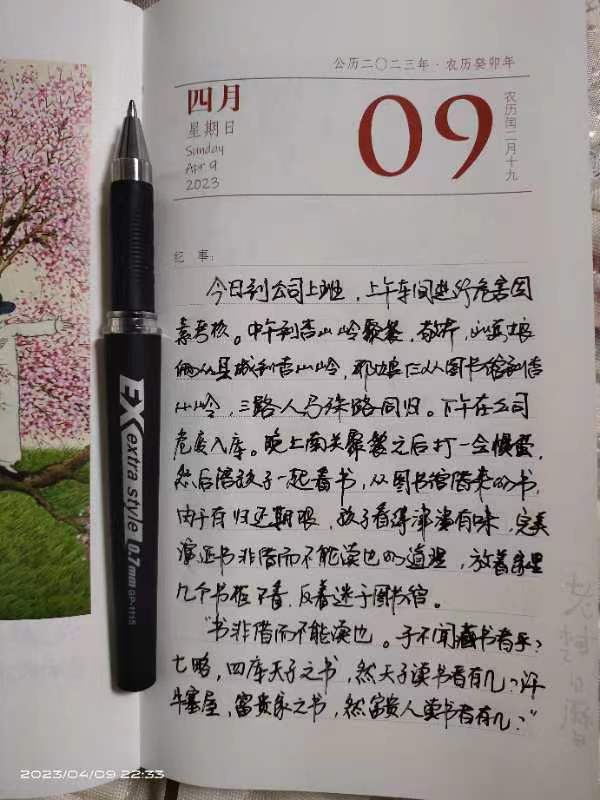 公历二〇二三年·农历癸卯年
四月
星期日
Sunday
Apr 9
2023
09
农历闰二月十九
纪 事:
今日到公司上班，上午车间进行危害因
素考核。中午到杏山岭聚餐，
俩从县城到杏山岭，那娘仨从图书馆到杏
山岭，三路人马殊路同归。下午在公司
入库。晚上南关聚餐之后打一会慢蛋，
然后陪孩子一起看书，从图书馆借来的书，
由于有归还期限，孩子看得津津有味，完美
演证书非借而不能读也的道理，放着家里
几个书柜不看，反着迷于图书馆。
“书非借而不能读也。子不闻藏书者乎？
七略，四库天子之书，然天子读书者有几？汗
牛塞屋，富贵家之书，然富贵人读书者有几？”
EX extra style 0.7mm GP-1115
2023/04/09 22:33